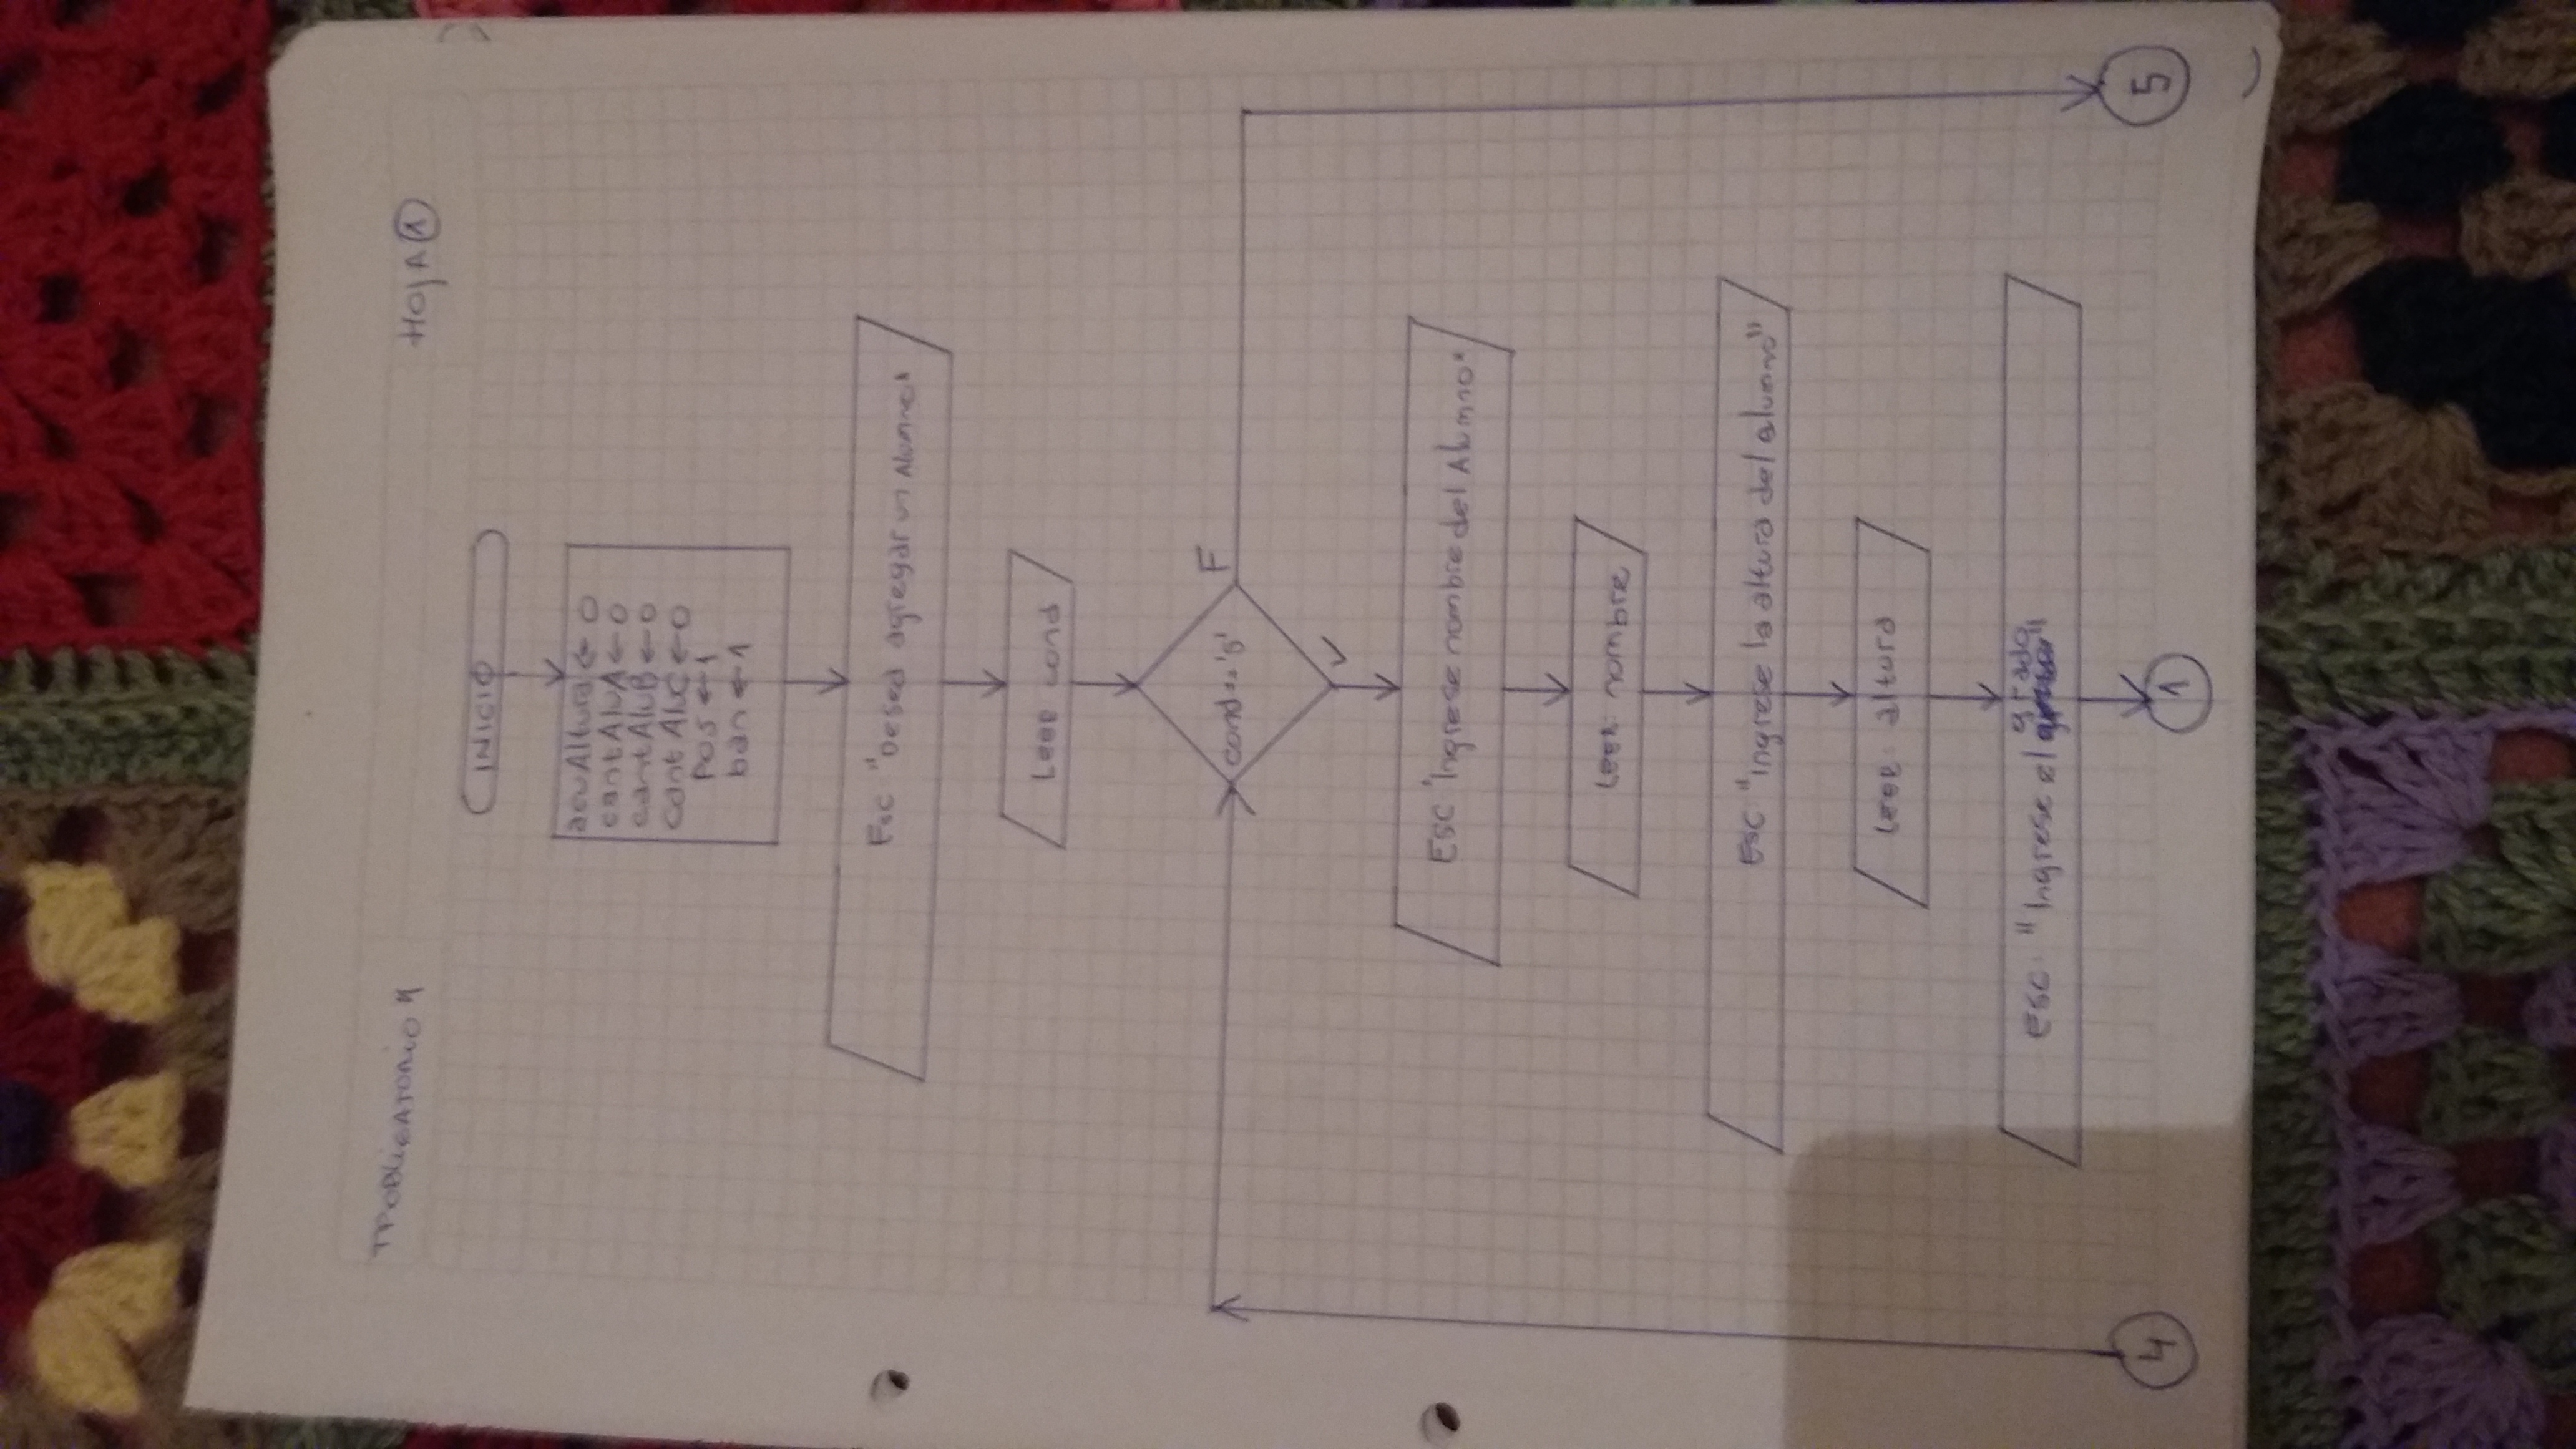 TP OBLIGATORIO 1
HOJA 1
INICIO
acuAltura ← 0
cantAluA ← 0
cantAluB ← 0
cantAluC ← 0
Pos ← 1
ban ← 1
Esc "Desea agregar un Alumno"
Leer cond
cond == 's'
F
V
Esc "Ingrese nombre del Alumno"
Leer: nombre
Esc "Ingrese la altura del alumno"
Leer: altura
Esc: "Ingrese el grado"
4
1
5